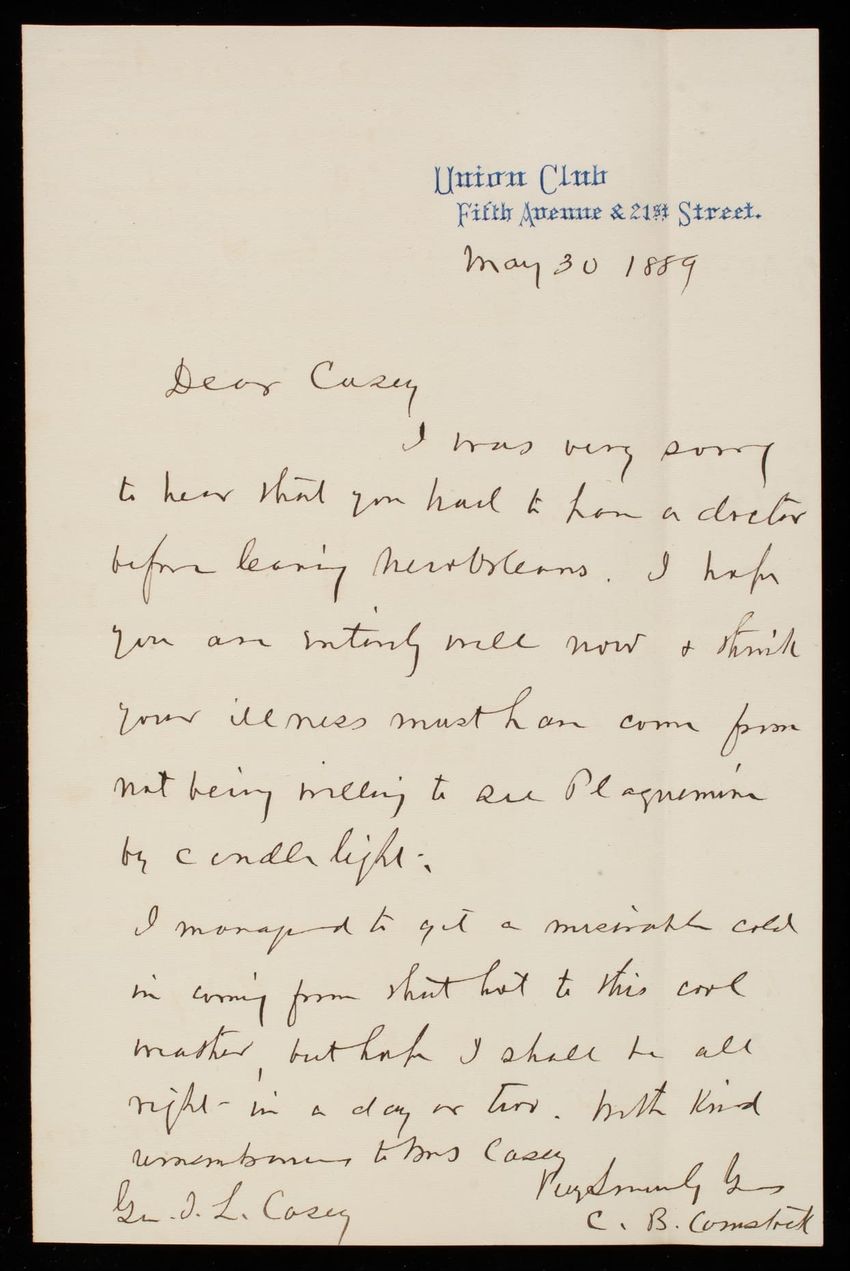 Union Club
Fifth Avenue & 21st Street.
May 30 1889
Dear Casey
I was very sorry
to hear that you had to have a doctor
before leaving New Orleans. I hope
you are entirely well now & think
your illness must have come from
not being willing to see Plaquemine
by candle light.
I managed to get a miserable cold
in coming from that hot to this cool
weather, but hope I shall be all
right in a day or two. With kind
remembrances to Mrs Casey
Very Sincerely Yrs
Gen. T. L. Casey
C. B. Comstock